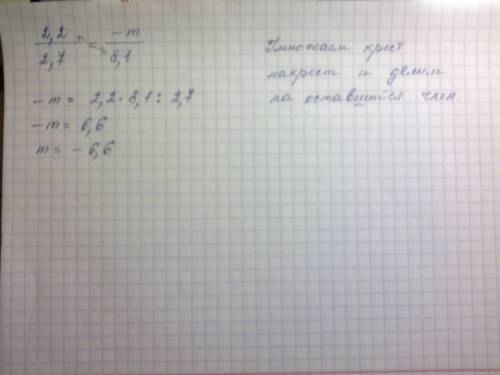 2,2 / 2,7 = -m / 8,1
-m = 2,2 · 8,1 : 2,7
-m = 6,6
m = - 6,6
Умножаем крест
накрест и делим
на оставшийся член.